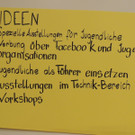 IDEEN
spezielle Ausstellungen für Jugendliche
Werbung über Facebook und Juge
organisationen
Jugendliche als Führer einsetzen
Ausstellungen im Technik-Bereich
Workshops